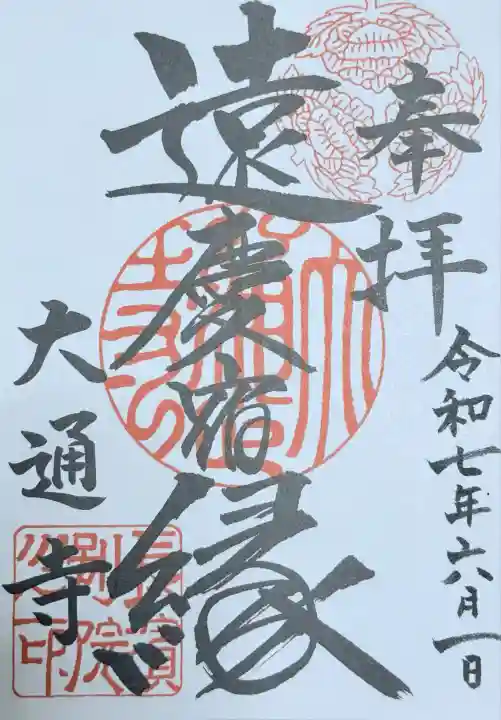 奉拝
令和七年六月一日
遠慶宿縁
大通寺
長濱
別院